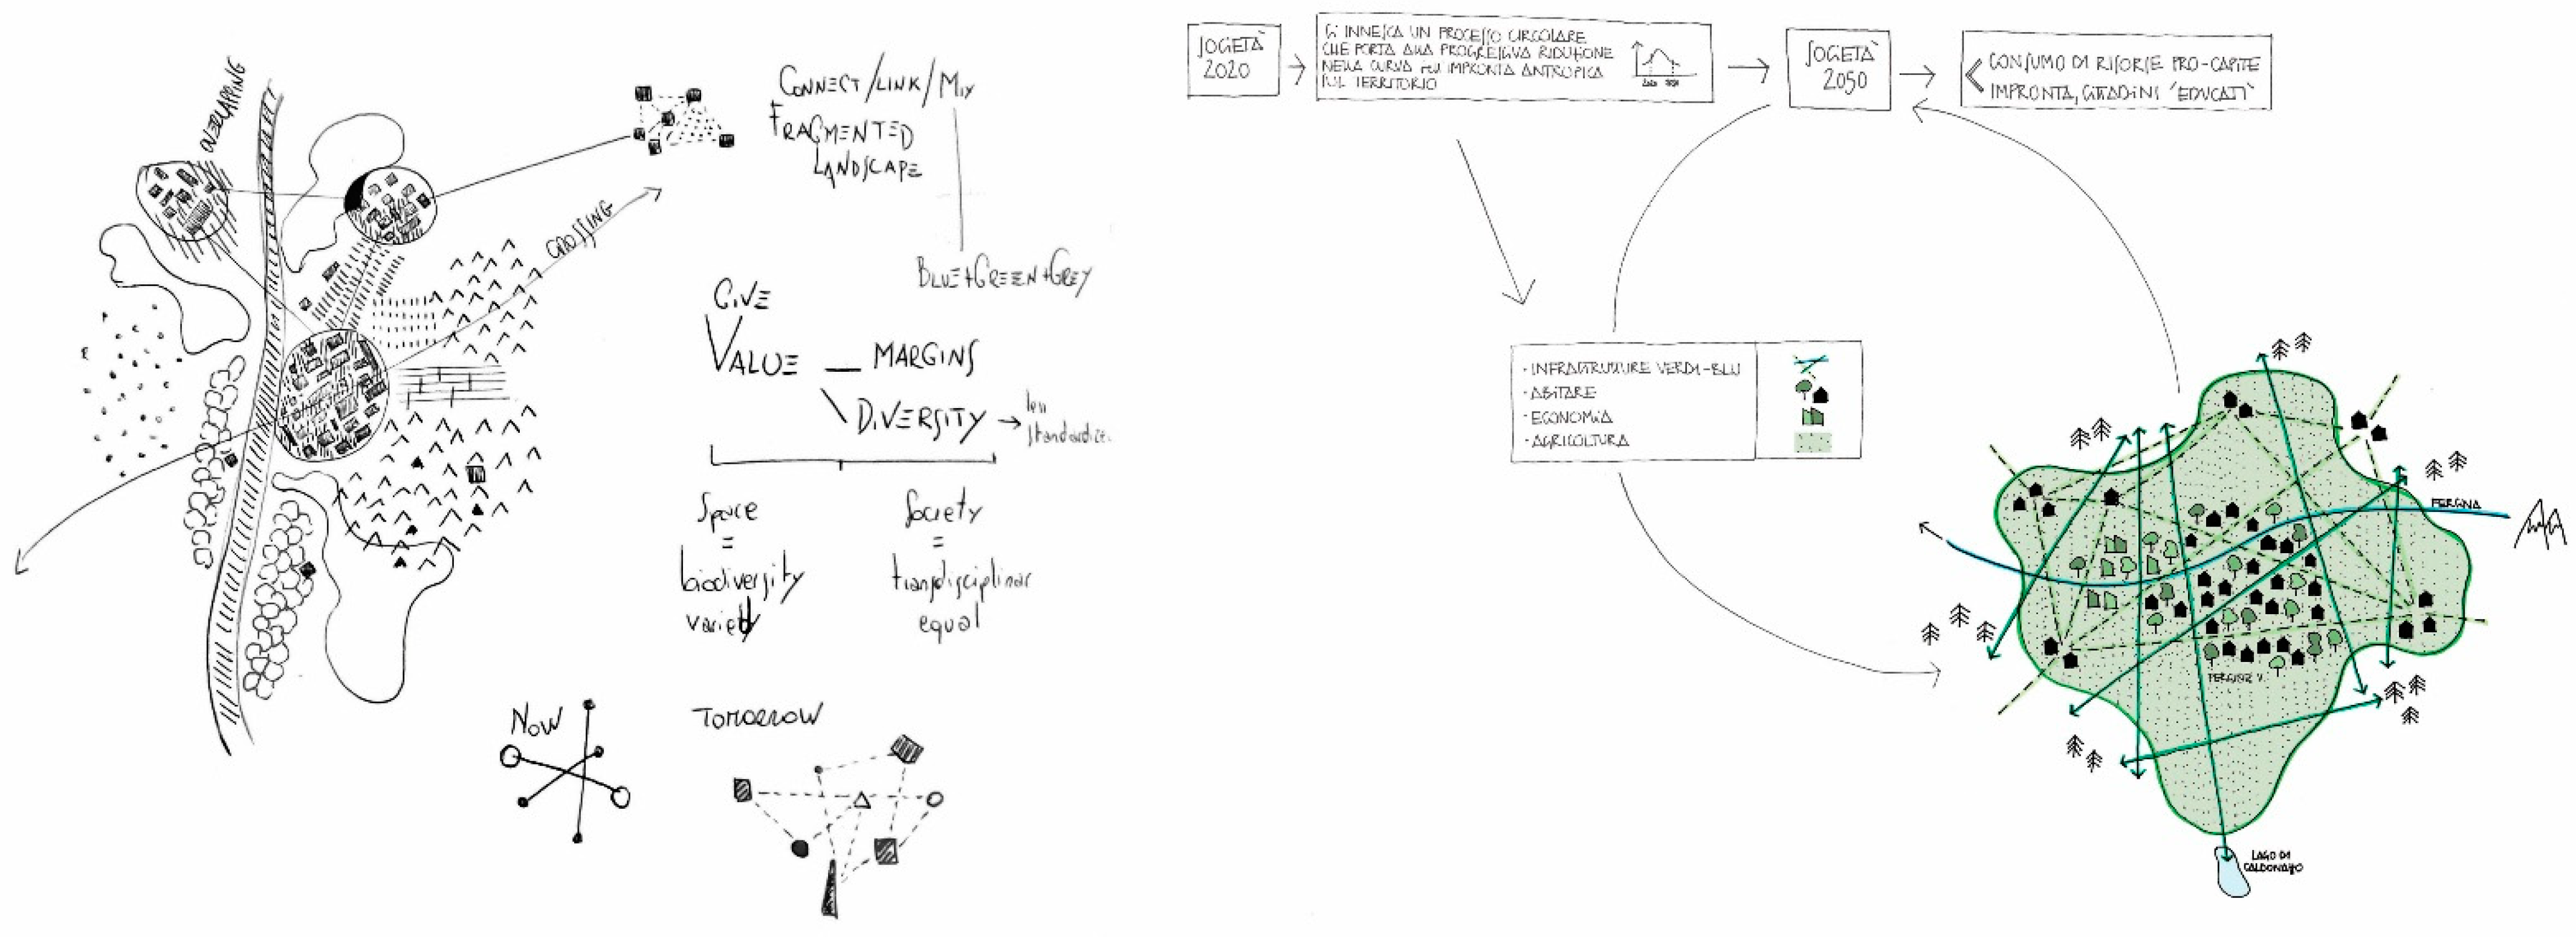 OVERLAPPING
CONNECT/LINK/MIX
FRAGMENTED
LANDSCAPE
CROSSING
BLUE+GREEN+GREY
GIVE
VALUE — MARGINS
DIVERSITY → less
Space
=
biodiversity
variety
Society
=
transdisciplinar
equal
NOW
TOMORROW
SOCIETÀ
2020
SI INNESCA UN PROCESSO CIRCOLARE
CHE PORTA ALLA PROGRESSIVA RIDUZIONE
NELLA CURVA DELL'IMPRONTA ANTROPICA
SUL TERRITORIO
2020 2050
SOCIETÀ
2050
< CONSUMO DI RISORSE PRO-CAPITE
IMPRONTA, CITTADINI 'EDUCATI'
· INFRASTRUTTURE VERDI-BLU
· ABITARE
· ECONOMIA
· AGRICOLTURA
FERSINA
PERGINE V.
LAGO DI
CALDONAZZO